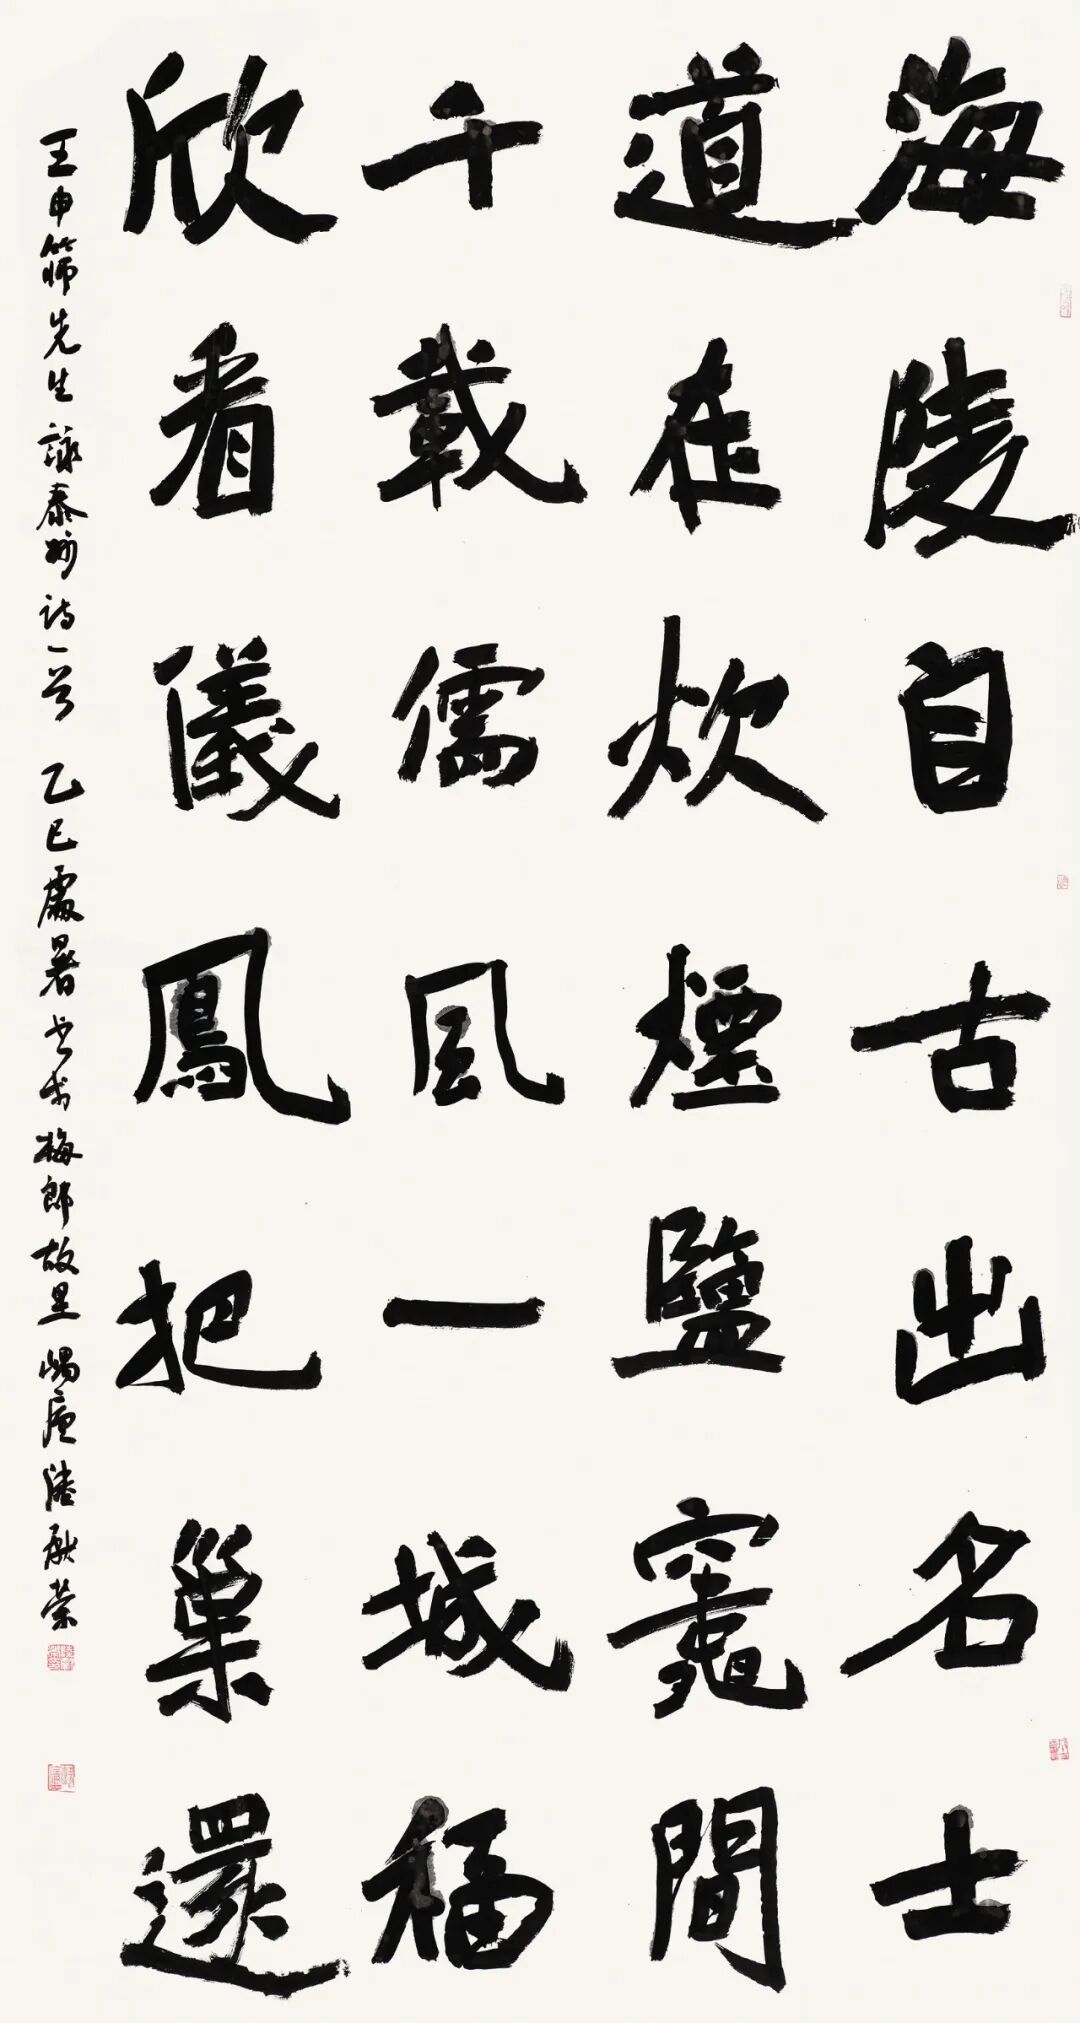 海陵自古出名士
道在炊煙鹽竈間
千載儒風一城福
欣看儀鳳把巢還
王申筛先生詠泰州诗一首 乙巳處暑书於梅郎故里 陸